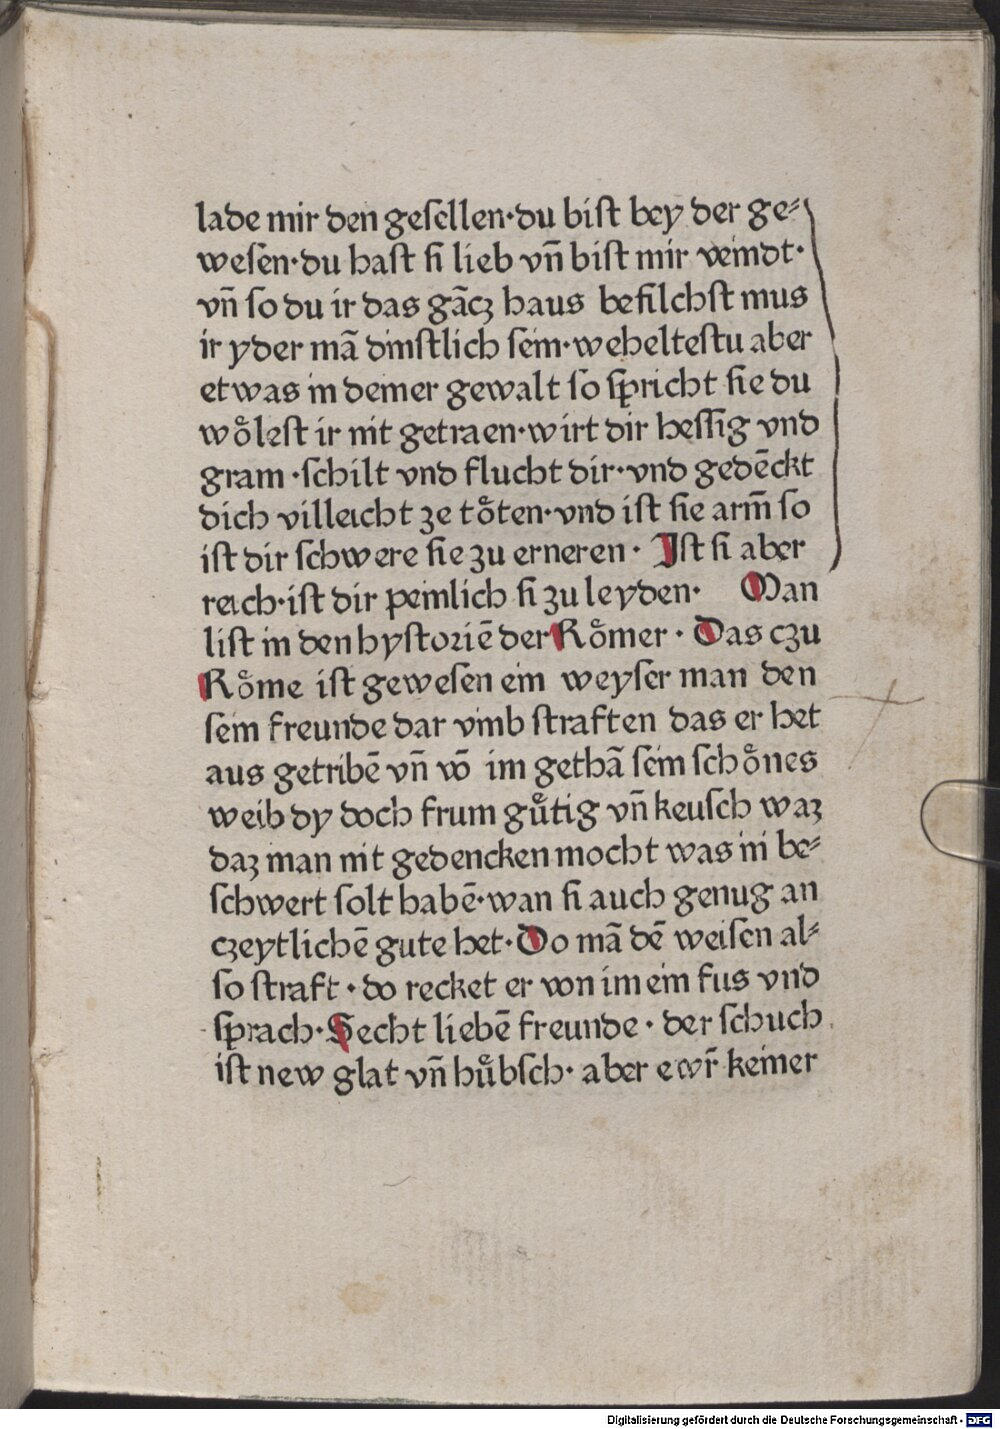 lade mir den gesellen·du bist bey der ge⸗
wesen·du hast si lieb vñ bist mir veindt·
vñ so du ir das gãcz haus befilchst mus
ir yder mã dinstlich sein·weheltestu aber
etwas in deiner gewalt so spricht sie du
woͤlest ir nit getraen·wirt dir hessig vnd
gram·schilt vnd flucht dir·vnd gedẽckt
dich villeicht ze toͤten·vnd ist sie arm̃ so
ist dir schwere sie zu erneren· Ist si aber
reich·ist dir peinlich si zu leyden· Man
list in den hystoriẽ der Roͤmer· Das czu
Roͤme ist gewesen ein weyser man den
sein freunde dar vmb straften das er het
aus getribẽ vñ võ im gethã sein schoͤnes
weib dy doch frum guͤtig vñ keusch waʒ
daʒ man nit gedencken mocht was in be⸗
schwert solt habẽ·wan si auch genug an
czeytlichẽ gute het·Do mã dẽ weisen al⸗
so straft·do recket er von im ein fus vnd
sprach·Secht liebẽ freunde·der schuch
ist new glat vñ huͤbsch·aber ewr̃ keiner
Digitalisierung gefördert durch die Deutsche Forschungsgemeinschaft - DFG